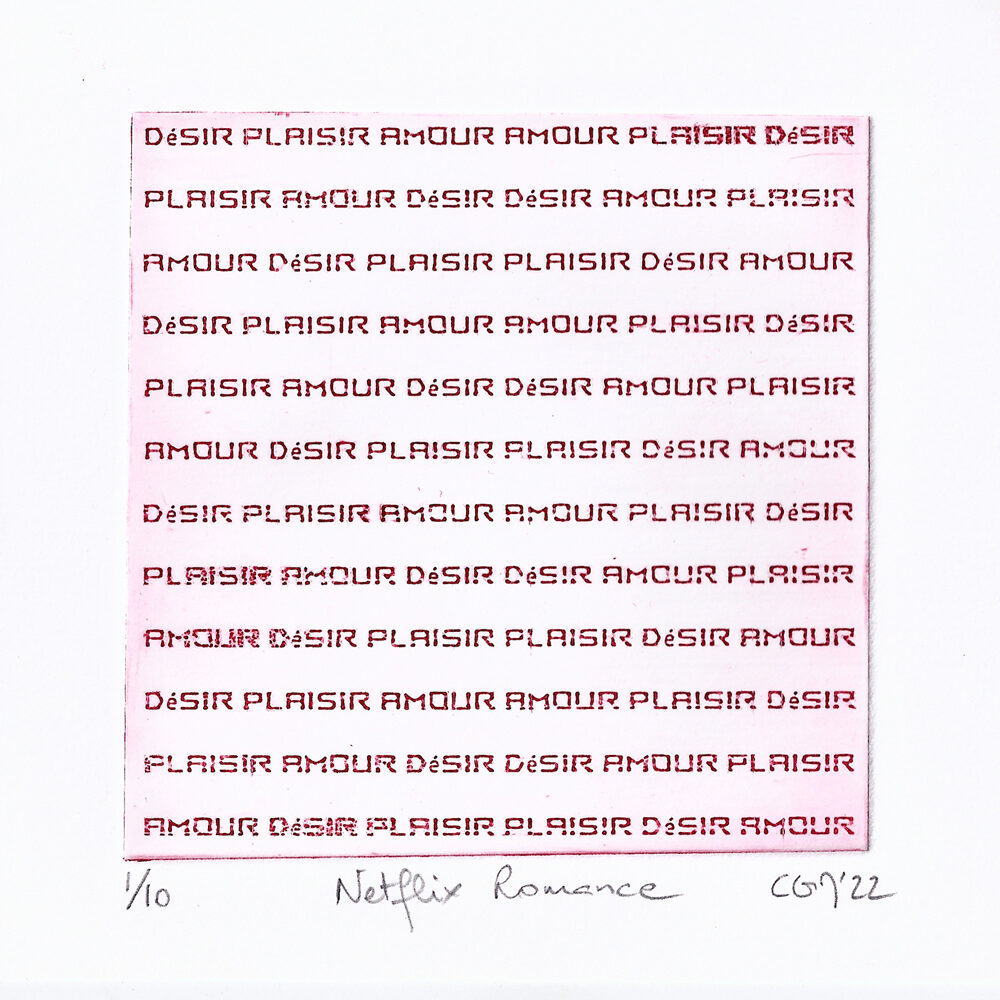 DéSIR PLAISIR AMOUR AMOUR PLAISIR DéSIR
PLAISIR AMOUR DéSIR DéSIR AMOUR PLAISIR
AMOUR DéSIR PLAISIR PLAISIR DéSIR AMOUR
DéSIR PLAISIR AMOUR AMOUR PLAISIR DéSIR
PLAISIR AMOUR DéSIR DéSIR AMOUR PLAISIR
AMOUR DéSIR PLAISIR PLAISIR DéSIR AMOUR
DéSIR PLAISIR AMOUR AMOUR PLAISIR DéSIR
PLAISIR AMOUR DéSIR DéSIR AMOUR PLAISIR
AMOUR DéSIR PLAISIR PLAISIR DéSIR AMOUR
DéSIR PLAISIR AMOUR AMOUR PLAISIR DéSIR
PLAISIR AMOUR DéSIR DéSIR AMOUR PLAISIR
AMOUR DéSIR PLAISIR PLAISIR DéSIR AMOUR
1/10 Netflix Romance '22